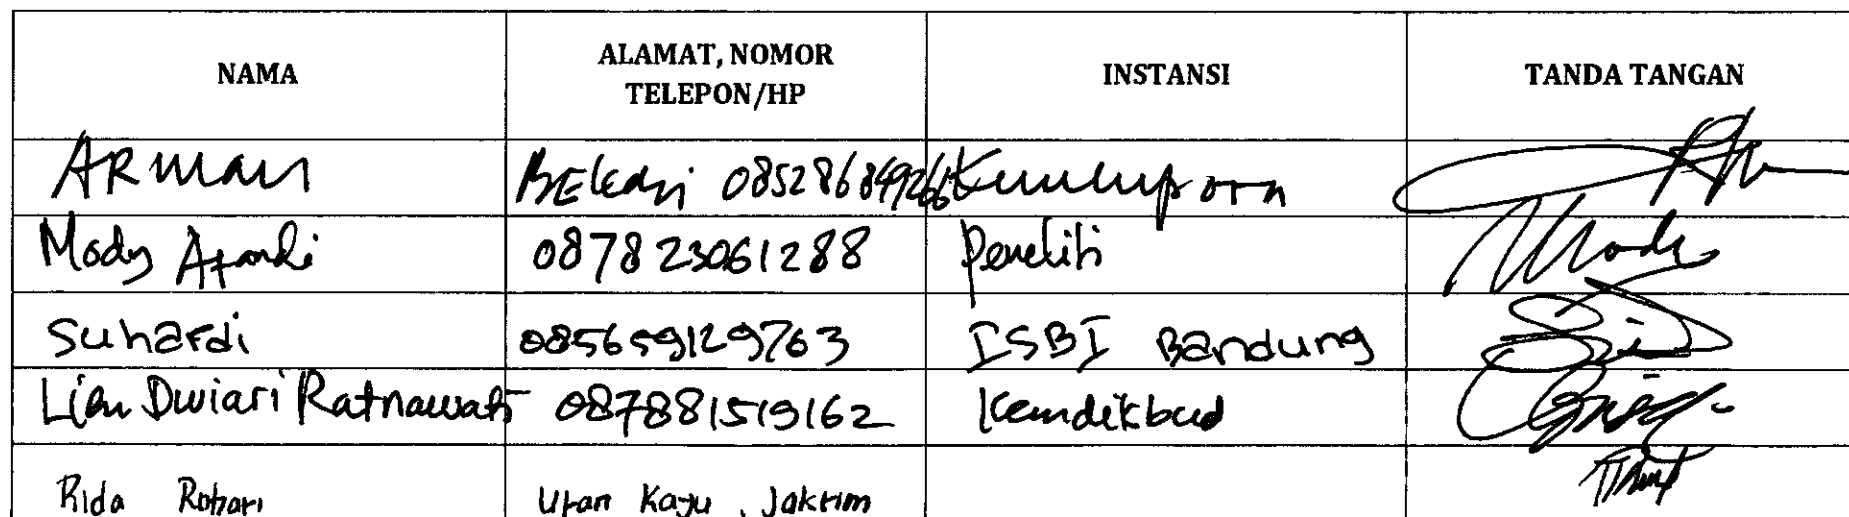 NAMA ALAMAT, NOMOR TELEPON/HP INSTANSI TANDA TANGAN
ARMAN Bekasi 085286849266 Kemenpora
Mody Afandi 087823061288 Peneliti
Suhardi 085659129763 ISBI Bandung
Lien Dwiari Ratnawati 087881519162 Kemdikbud
Rida Utan Kayu, Jaktim